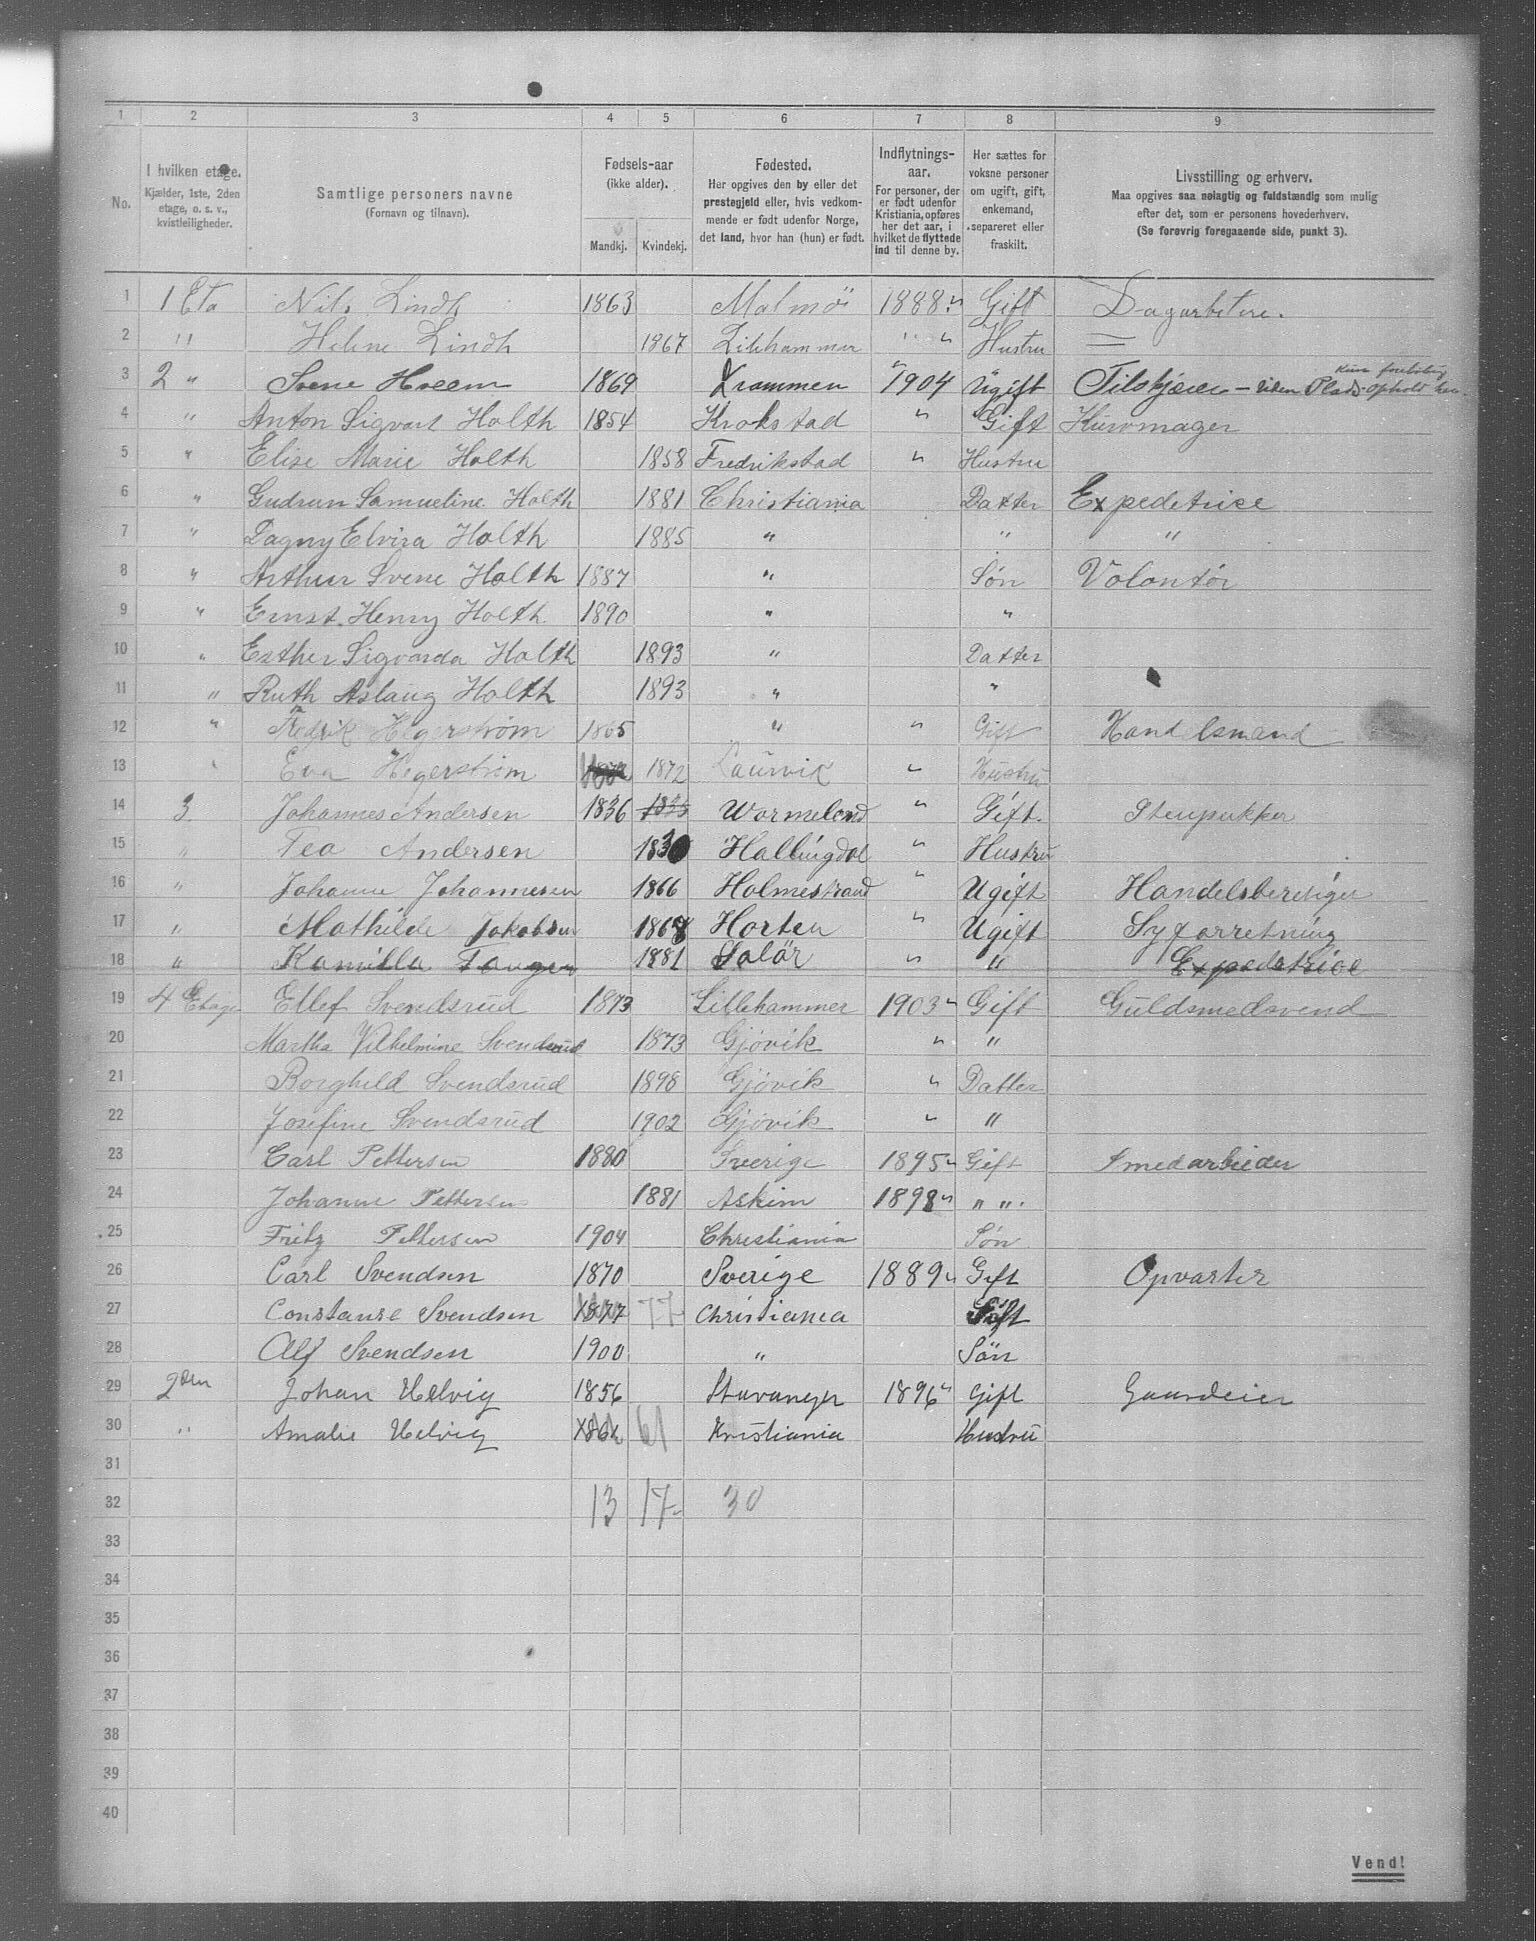 1 2 3 4 5 6 7 8 9
No.
I hvilken etage.
Kjælder, 1ste, 2den
etage, o. s. v.,
kvistleiligheder.
Samtlige personers navne
(Fornavn og tilnavn).
Fødsels-aar
(ikke alder).
Mandkj. Kvindekj.
Fødested.
Her opgives den by eller det
prestegjeld eller, hvis vedkom-
mende er født udenfor Norge,
det land, hvor han (hun) er født.
Indflytnings-
aar.
For personer, der
er født udenfor
Kristiania, opføres
her det aar, i
hvilket de flyttede
ind til denne by.
Her sættes for
voksne personer
om ugift, gift,
enkemand,
separeret eller
fraskilt.
Livsstilling og erhverv.
Maa opgives saa nøiagtig og fuldstændig som mulig
efter det, som er personens hovederhverv.
(Se forøvrig foregaaende side, punkt 3).
1 1 Eta Nils Lindh 1863 Malmö 1888 " Gift Dagarbeitere.
2 " Helene Lindh 1867 Lillehammer " " Hustru
3 2 " Svene Hveem 1869 Drammen " 1904 Ugift Tilskjærer - uden Plads. Kun foreløbig Ophold her.
4 " Anton Sigvart Holth 1854 Krokstad " Gift Kurvmager
5 " Elise Marie Holth 1858 Fredrikstad " Hustru
6 " Gudrun Samueline Holth 1881 Christiania Datter Expedetrice
7 " Dagny Elvira Holth 1885 " " "
8 " Arthur Svene Holth 1887 " Søn Volontör
9 " Ernst Henry Holth 1890 " "
10 " Esther Sigvarda Holth 1893 " Datter
11 " Ruth Aslaug Holth 1893 " "
12 " Fredrik Hegerstrøm 1865 " " Gift Handelsmand
13 " Eva Hegerstrøm 1872 Laurvik " Hustru
14 3 Johannes Andersen 1836 1835 Wormeland " Gift. Stenpukker
15 " Tea Andersen 1830 Hallingdal " Hustru
16 " Johanne Johannesen 1866 Holmestrand " Ugift Handelsberetiget
17 " Mathilde Jakobsen 1868 Horten " Ugift Syforretning
18 " Kamilla Tangen 1881 Solör " " Expedetrice
19 4 Etage Ellef Svendsrud 1873 Lillehammer 1903 " Gift Guldsmedsvend
20 Martha Vilhelmine Svendsrud 1873 Gjövik " "
21 Borghild Svendsrud 1898 Gjövik " Datter
22 Josefine Svendsrud 1902 Gjövik " "
23 Carl Pettersen 1880 Sverige 1895 " Gift Smedarbieder
24 Johanne Pettersen 1881 Askim 1898 " " "
25 Fritz Pettersen 1904 Christiania Søn
26 Carl Svendsen 1870 Sverige 1889 " Gift Opvarter
27 Constanse Svendsen 1877 77 Christiania Gift
28 Alf Svendsen 1900 " Sön
29 2den Johan Helvig 1856 Stavanger 1896 " Gift Gaardeier
30 " Amalie Helvig 61 Kristiania Hustru
31
32 13 17 30
33
34
35
36
37
38
39
40
Vend!